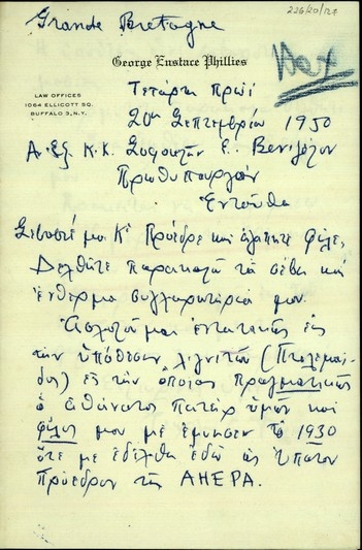 Grande Bretagne
226/20/124
George Eustace Phillies
LAW OFFICES
1064 ELLICOTT SQ.
BUFFALO 3, N.Y.
Τετάρτη Πρωί
20ην Σεπτεμβρίου 1950
Α. Εξ. κ. κ. Σοφοκλήν Ε. Βενιζέλον
Πρωθυπουργόν
Ἐνταῦθα
Σεβαστέ μοι Κε Πρόεδρε και ἀγαπητέ φίλε,
Δεχθῆτε παρακαλῶ τα σέβη και
ἔνθερμα συγχαρητήρια μου.
Ἀσχολοῦμαι ἐντατικῶς εἰς
την ὑπόθεσιν λιγνιτῶν (Πτολεμαΐ-
δος) εἰς την ὁποίαν πραγματικῶς
ὁ ἀθάνατος πατήρ ὑμῶν και
φίλος μου με ἐμύησεν το 1930
ὅτε με ἐδέχθη ἐδῶ ὡς ὕπατον
Πρόεδρον της AHEPA.